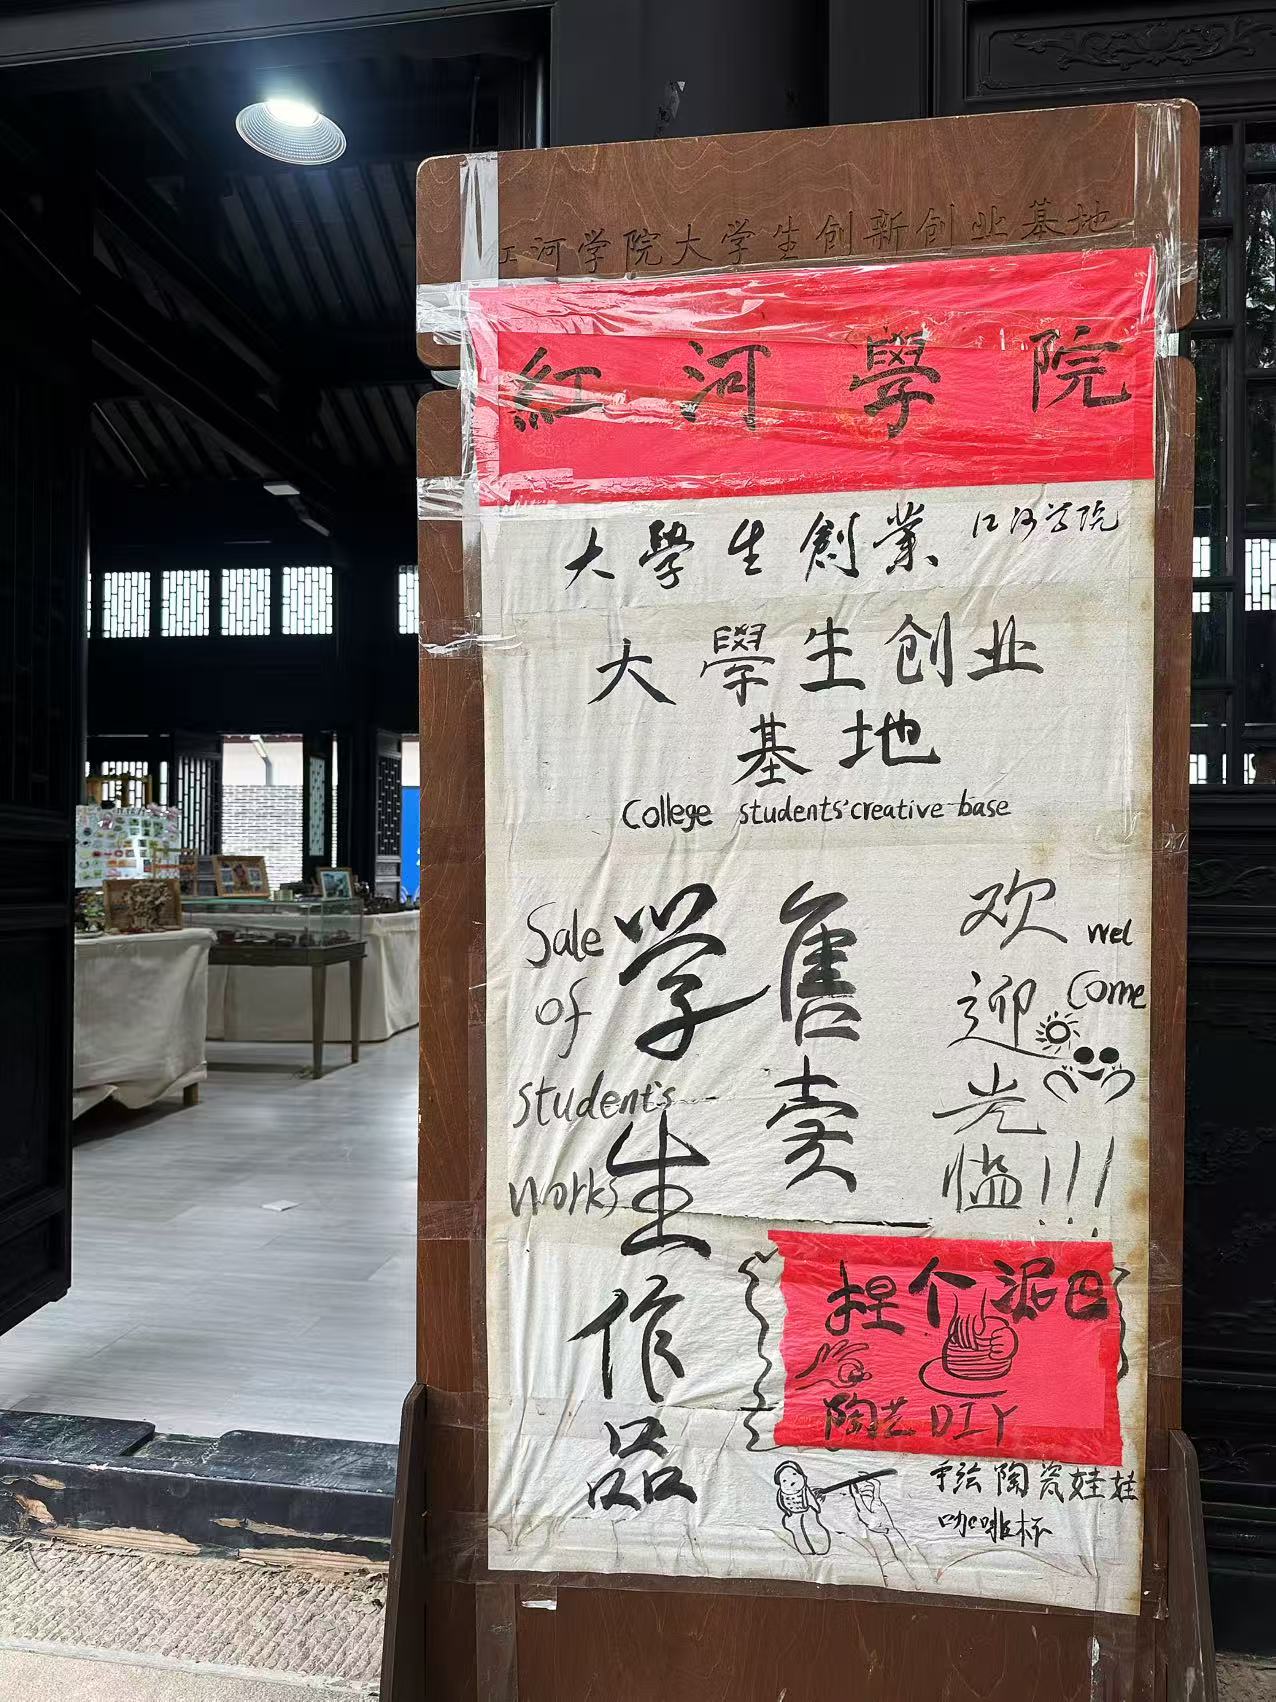 红河学院大学生创新创业基地
紅河學院
大學生創業 红河学院
大學生创业
基地
College students' creative base
欢迎光临!!!
wel
come
售卖
学生作品
Sale
of
student's
works
捏个泥巴
陶艺DIY
手绘陶瓷娃娃
咖啡杯